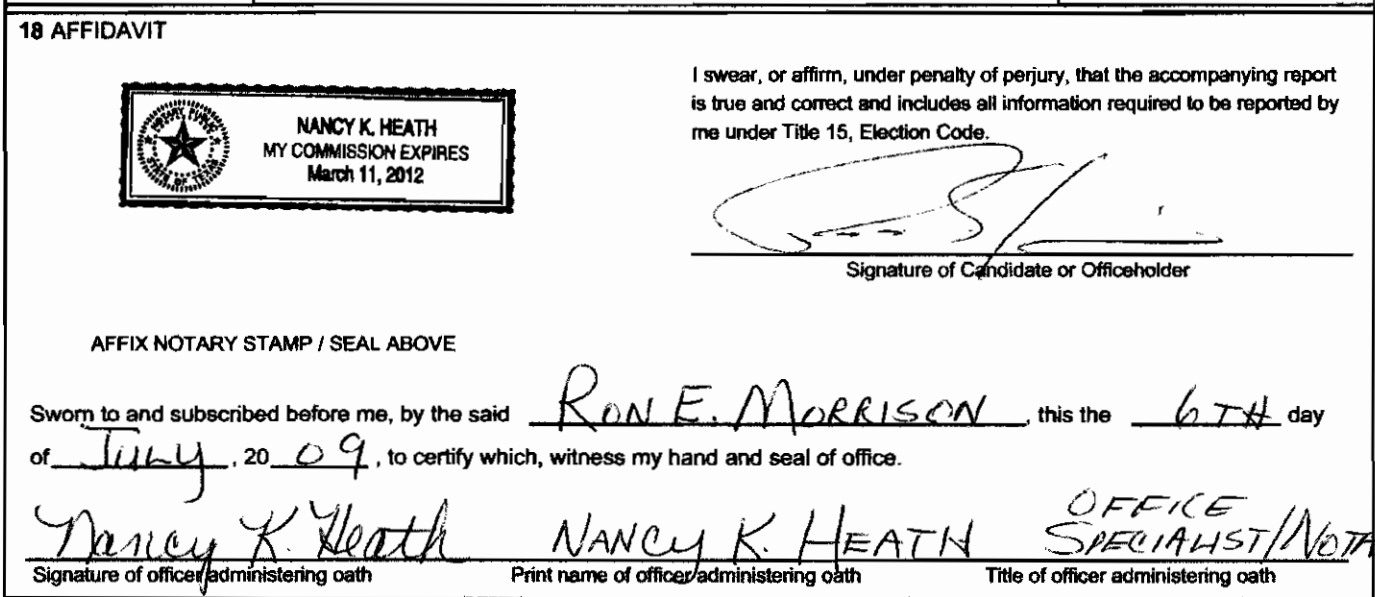 18 AFFIDAVIT
NOTARY PUBLIC
STATE OF TEXAS
NANCY K. HEATH
MY COMMISSION EXPIRES
March 11, 2012
I swear, or affirm, under penalty of perjury, that the accompanying report
is true and correct and includes all information required to be reported by
me under Title 15, Election Code.
Signature of Candidate or Officeholder
AFFIX NOTARY STAMP / SEAL ABOVE
Sworn to and subscribed before me, by the said RON E. MORRISON, this the 6TH day
of JULY, 20 09, to certify which, witness my hand and seal of office.
Nancy K. Heath NANCY K. HEATH OFFICE
SPECIALIST/NOTA
Signature of officer administering oath Print name of officer administering oath Title of officer administering oath